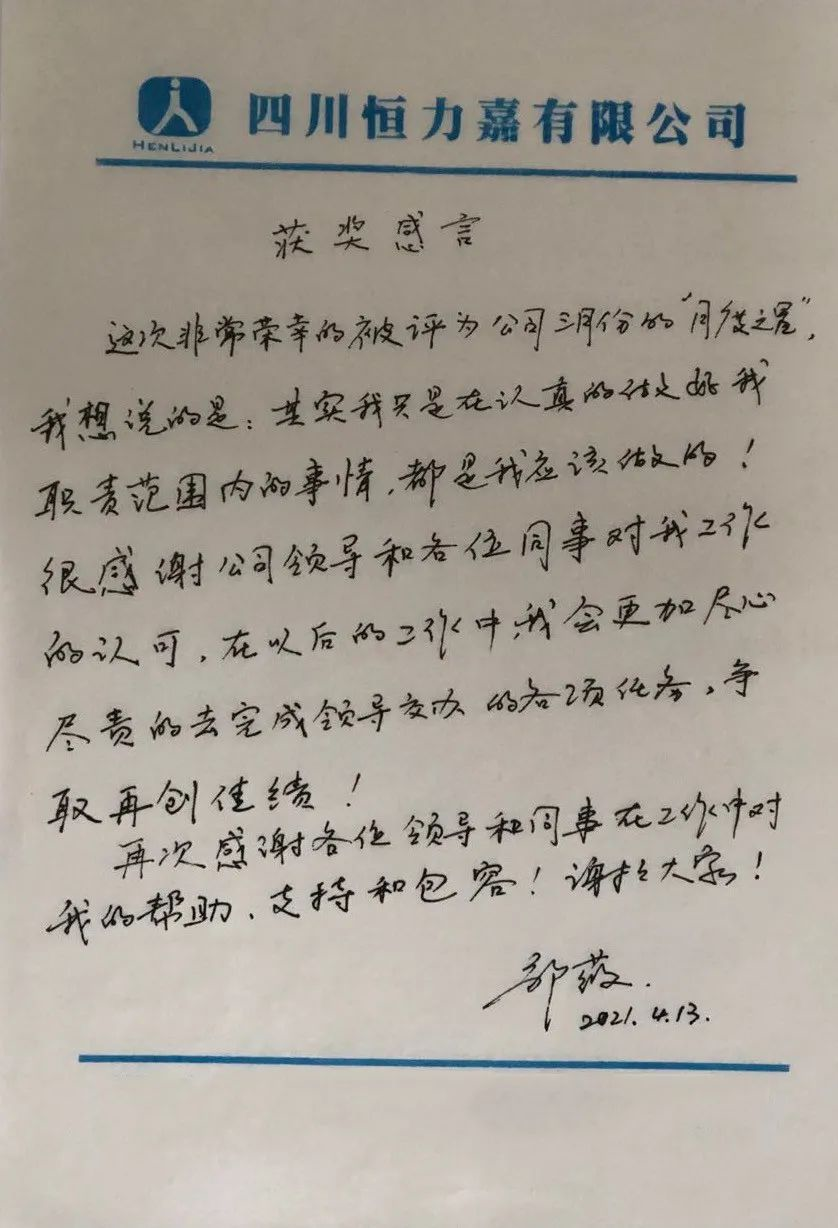 HENLIJIA
四川恒力嘉有限公司
获奖感言
这次非常荣幸的被评为公司三月份的“月度之星”,
我想说的是:其实我只是在认真的做好我
职责范围内的事情,都是我应该做的!
很感谢公司领导和各位同事对我工作
的认可,在以后的工作中,我会更加尽心
尽责的去完成领导交办的各项任务,争
取再创佳绩!
再次感谢各位领导和同事在工作中对
我的帮助、支持和包容!谢谢大家!
2021.4.13.